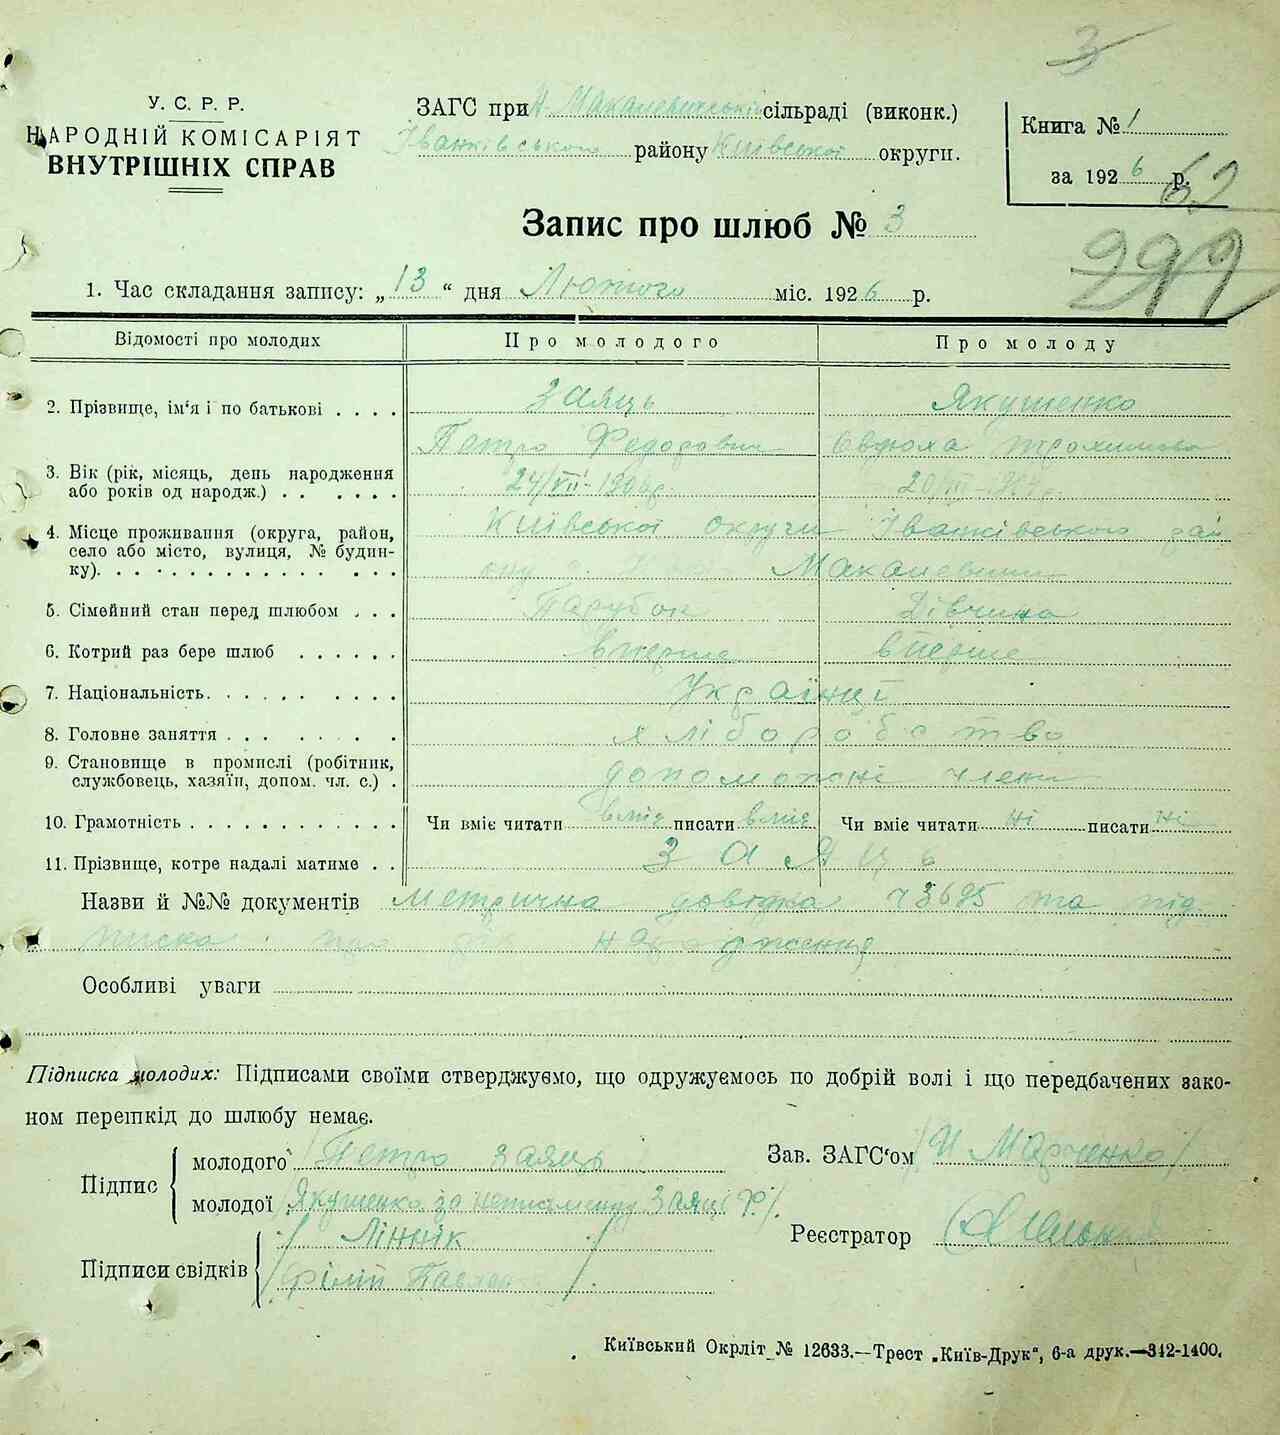 3
У. С. Р. Р.
НАРОДНІЙ КОМІСАРІЯТ
ВНУТРІШНІХ СПРАВ
ЗАГС при Н-Макалевичській сільраді (виконк.)
Іванківського району Київської округи.
Книга № 1
за 1926 р.
62
Запис про шлюб № 3
299
1. Час складання запису: „13“ дня Лютого міс. 1926 р.
Відомості про молодих Про молодого Про молоду
2. Прізвище, ім'я і по батькові . . . . Заяць Якушенко
Петро Федорович Євдоха Трохимовна
3. Вік (рік, місяць, день народження
або років од народж.) . . . . . . . 24/VII-1906р. 20/
4. Місце проживання (округа, район,
село або місто, вулиця, № будин-
ку). . . . . . . . . . . . . . . . Київської округи Іванківського рай
ону Макалевичі
5. Сімейний стан перед шлюбом . . . Парубок Дівчина
6. Котрий раз бере шлюб . . . . . . Вперше вперше
7. Національність. . . . . . . . . . . Українці
8. Головне заняття . . . . . . . . . хліборобство
9. Становище в промислі (робітник,
службовець, хазяїн, допом. чл. с.) . допоможні члени
10. Грамотність . . . . . . . . . . . . Чи вміє читати вміє писати вміє Чи вміє читати ні писати ні
11. Прізвище, котре надалі матиме . . Заяць
Назви й №№ документів метрична довідка ч3695 та під
писка про народження
Особливі уваги
Підписка молодих: Підписами своїми стверджуємо, що одружуємось по добрій волі і що передбачених зако-
ном перешкід до шлюбу немає.
Підпис
молодого /Петро Заяць
молодої /Якушенко за неписьменну Заяць Ф./
Зав. ЗАГС'ом /И Марченко/
Реєстратор
Підписи свідків
/Ліннік/
/Філіп
Київський Окрліт № 12633.—Трест „Київ-Друк“, 6-а друк.—342-1400.